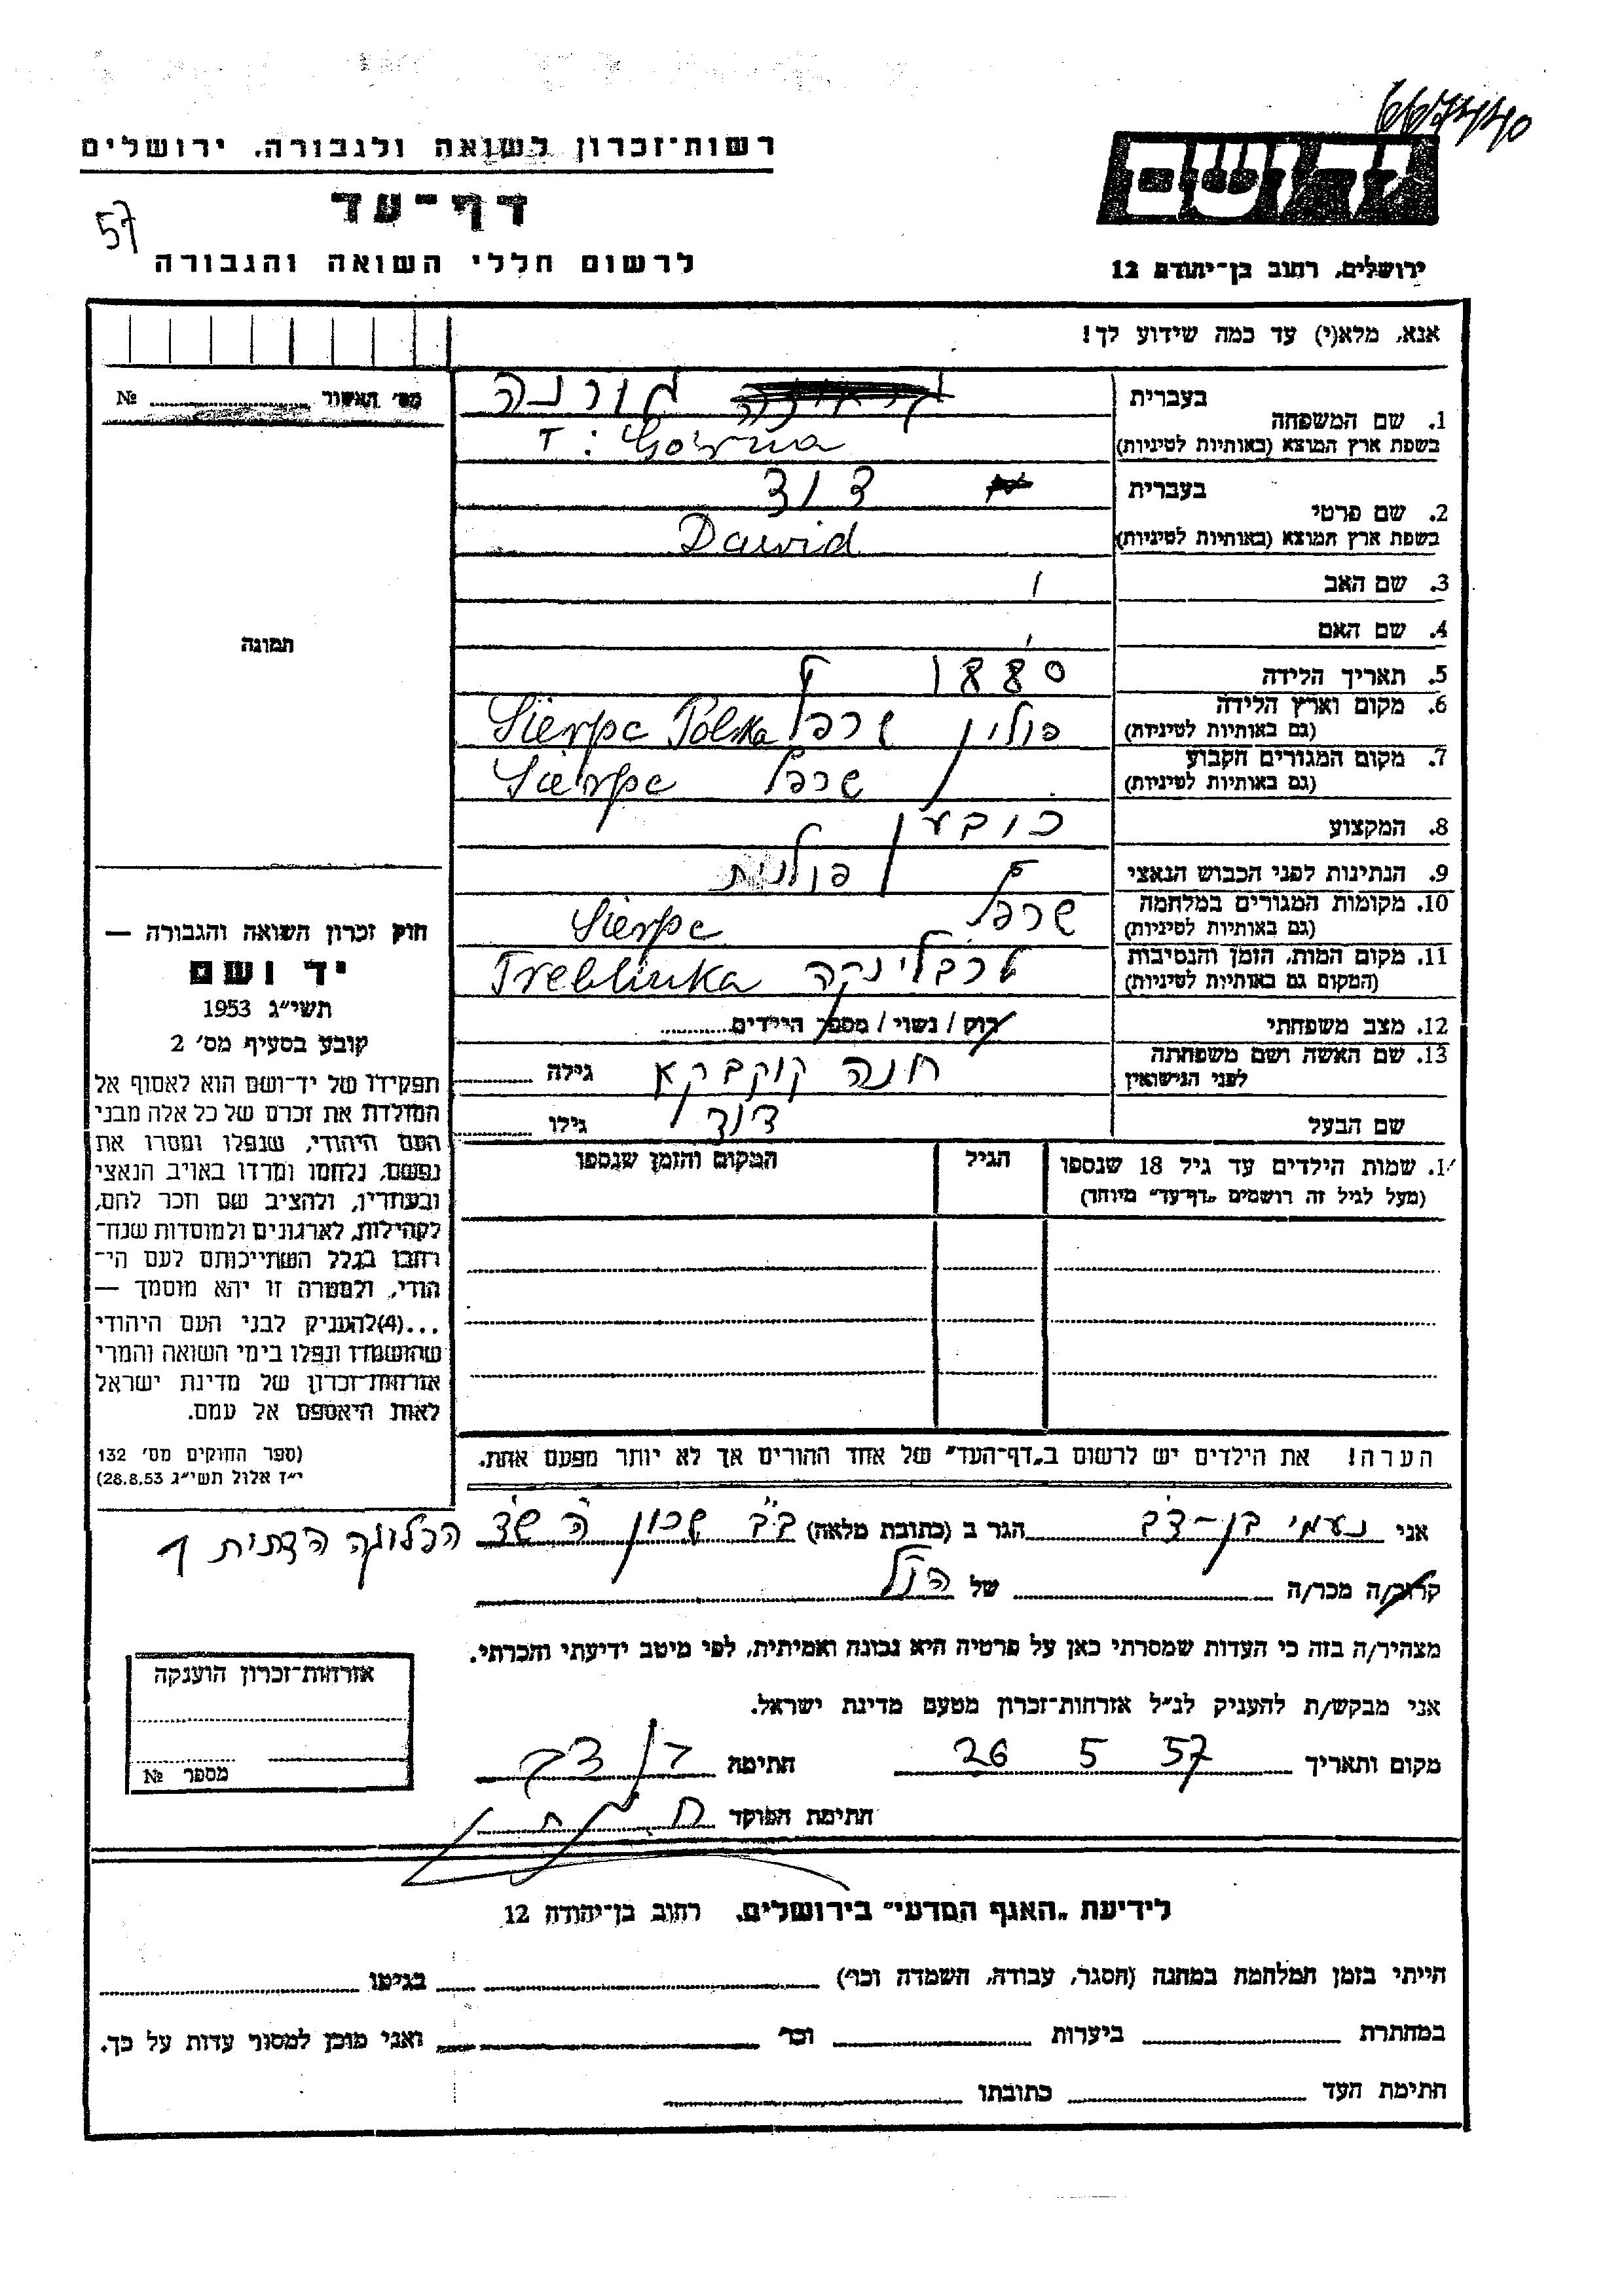 רשות־זכרון לשואה ולגבורה, ירושלים
דף־עד
57
לרשום חללי השואה והגבורה
ירושלים, רחוב בן־יהודה 12
אנא, מלא(י) עד כמה שידוע לך!
מס׳ האשור № 
1. שם המשפחה בעברית גורנה
בשפת ארץ המוצא (באותיות לטיניות) Górna
2. שם פרטי בעברית דוד
בשפת ארץ המוצא (באותיות לטיניות) Dawid
3. שם האב
4. שם האם
תמונה
5. תאריך הלידה 1880
6. מקום וארץ הלידה (גם באותיות לטיניות) פולין שרפץ Sierpc Polska
7. מקום המגורים הקבוע (גם באותיות לטיניות) שרפץ Sierpc
8. המקצוע כובען
9. הנתינות לפני הכבוש הנאצי פולנית
10. מקומות המגורים במלחמה (גם באותיות לטיניות) שרפץ Sierpc
11. מקום המות, הזמן והנסיבות (המקום גם באותיות לטיניות) טרבלינקה Treblinka
12. מצב משפחתי רוק / נשוי / מספר הילדים
13. שם האשה ושם משפחתה לפני הנישואין חנה גילה
שם הבעל דוד גילו
חוק זכרון השואה והגבורה —
יד ושם
תשי״ג 1953
קובע בסעיף מס׳ 2
תפקידו של יד־ושם הוא לאסוף אל
המולדת את זכרם של כל אלה מבני
העם היהודי, שנפלו ומסרו את
נפשם, נלחמו ומרדו באויב הנאצי
ובעוזריו, ולהציב שם וזכר להם,
לקהילות, לארגונים ולמוסדות שנח־
רבו בגלל השתייכותם לעם הי־
הודי, ולמטרה זו יהא מוסמך —
...(4) להעניק לבני העם היהודי
שהושמדו ונפלו בימי השואה והמרי
אזרחות־זכרון של מדינת ישראל
לאות היאספם אל עמם.
(ספר החוקים מס׳ 132
י״ז אלול תשי״ג 28.8.53)
שמות הילדים עד גיל 18 שנספו הגיל המקום והזמן שנספו
(מעל לגיל זה רושמים „דף־עד״ מיוחד)
הערה! את הילדים יש לרשום ב„דף־העד״ של אחד ההורים אך לא יותר מפעם אחת.
אני נעמי בן-דב הגר ב (כתובת מלאה) ב״ב שכון
קרוב/ה מכר/ה של הנ״ל
מצהיר/ה בזה כי העדות שמסרתי כאן על פרטיה היא נכונה ואמיתית, לפי מיטב ידיעתי והכרתי.
אני מבקש/ת להעניק לנ״ל אזרחות־זכרון מטעם מדינת ישראל.
מקום ותאריך 26 5 57 חתימה בן דב
חתימת הפוקד
אזרחות־זכרון הוענקה
מספר №
לידיעת „האגף המדעי״ בירושלים, רחוב בן־יהודה 12
הייתי בזמן המלחמה במחנה (הסגר, עבודה, השמדה וכו׳) בגיטו
במחתרת ביערות וכו׳ ואני מוכן למסור עדות על כך.
חתימת העד כתובתו